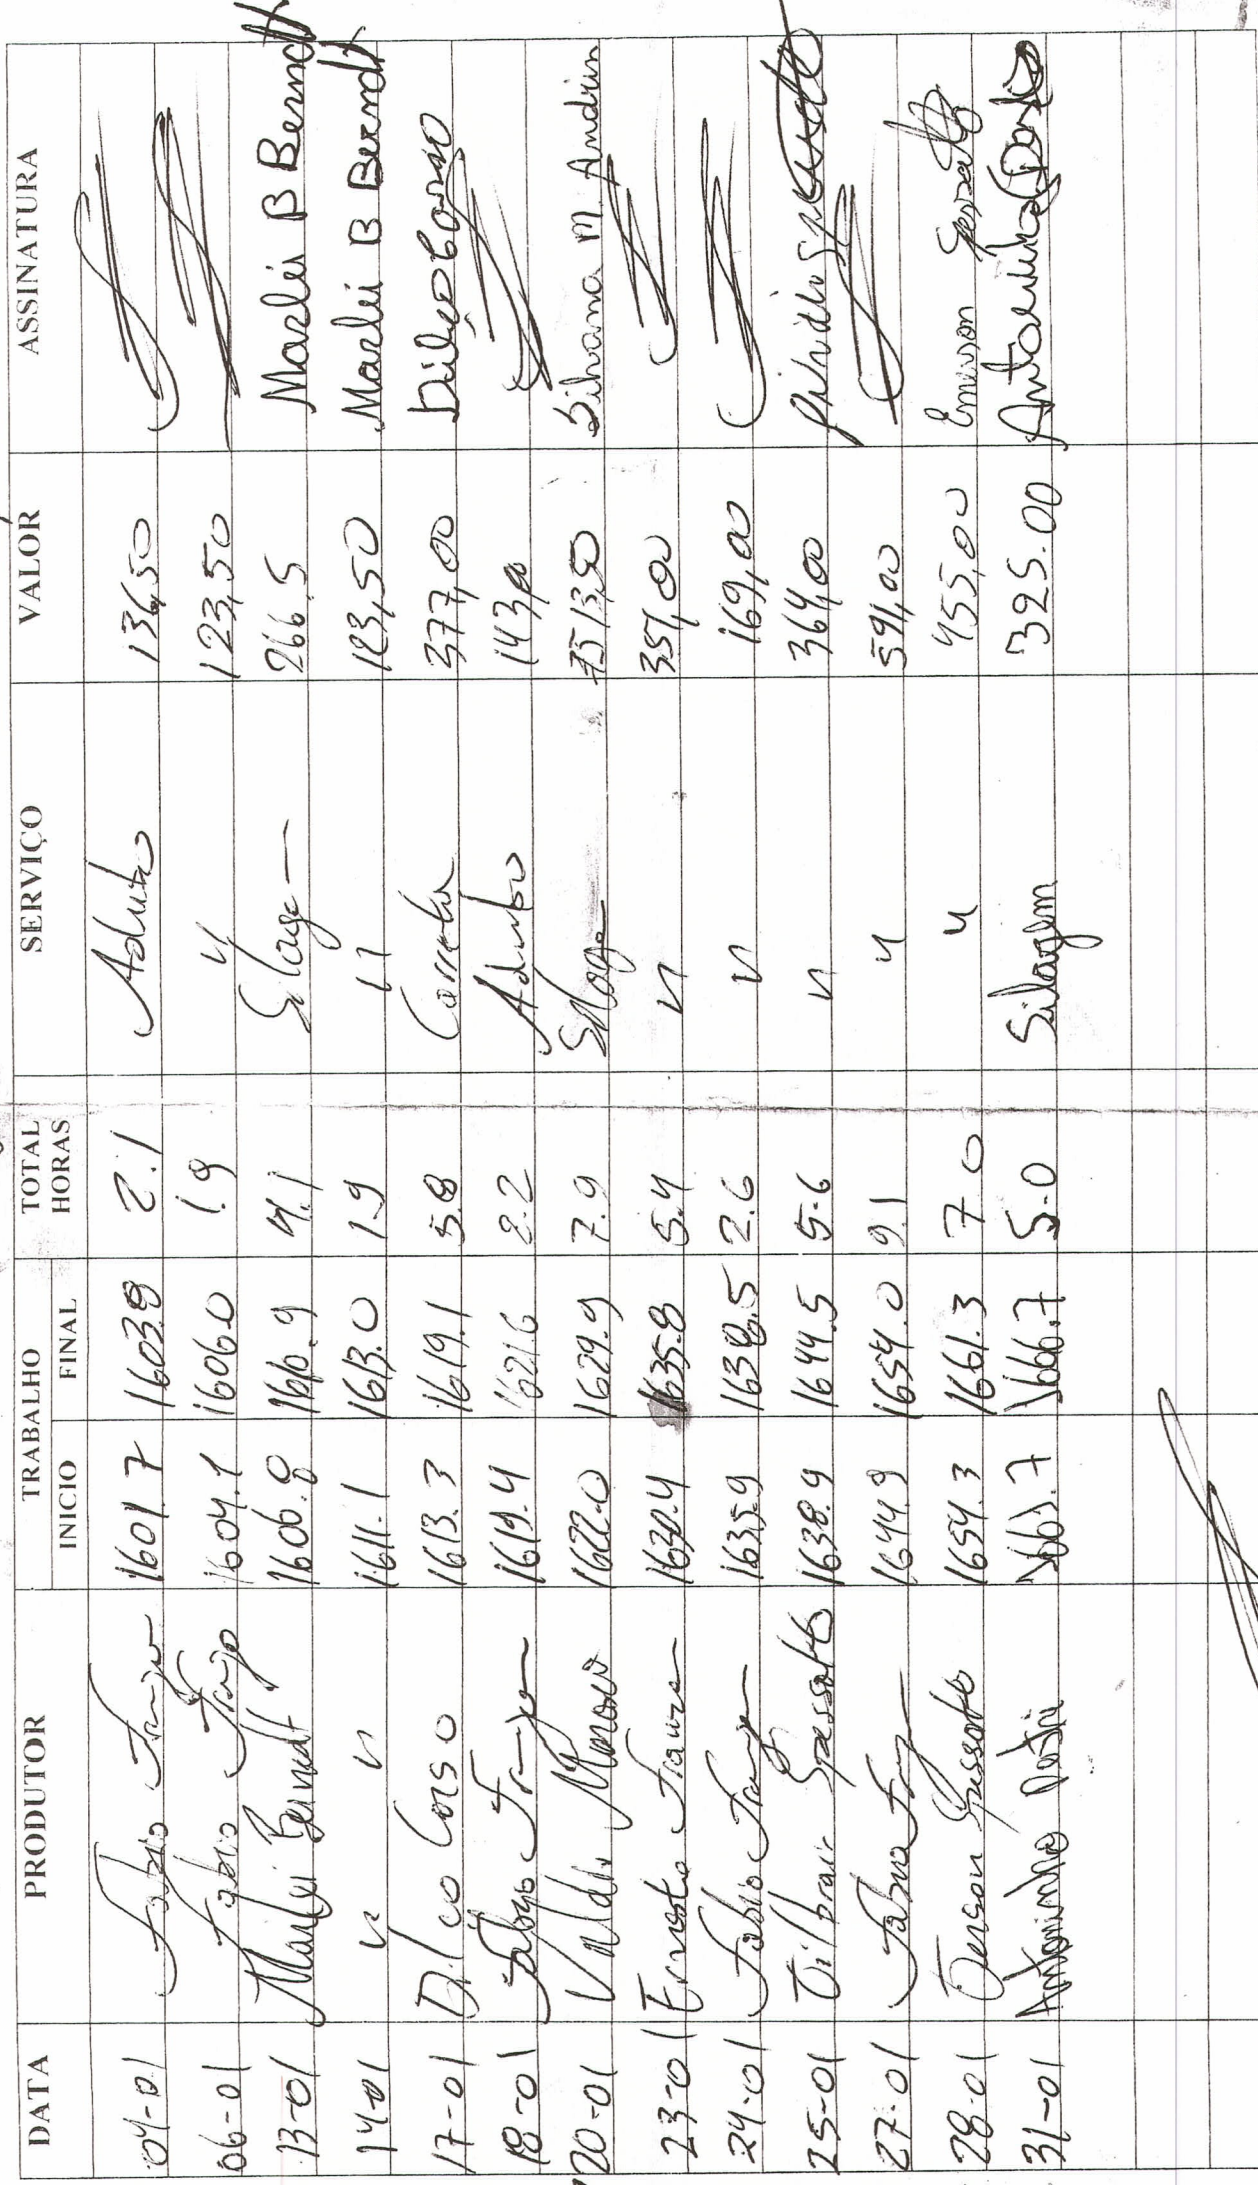 DATA PRODUTOR TRABALHO INICIO FINAL TOTAL HORAS SERVIÇO VALOR ASSINATURA
04-01 Fabio 1601.7 1603.8 2.1 Adubo 136,50
06-01 Fabio 1604.1 1606.0 1.9 " 123,50
13-01 Marlei Berndt 1606.8 1610.9 4.1 Silage 266,5 Marlei B Berndt
14-01 " " 1611.1 1613.0 1.9 " 123,50 Marlei B Berndt
17-01 Dilco Corso 1613.3 1619.1 5.8 Carreta 377,00 Dilco Corso
18-01 Fabio 1619.4 1621.6 2.2 Adubo 143,00
20-01 Valdir 1622.0 1629.9 7.9 Silage 513,50 Silvana M. Andrin
23-01 Ernesto 1630.4 1635.8 5.4 " 351,00
24-01 Fabio 1635.9 1638.5 2.6 " 169,00
25-01 Spessatto 1638.9 1644.5 5.6 " 364,00
27-01 Fabio 1644.9 1654.0 9.1 " 591,00
28-01 Spessatto 1654.3 1661.3 7.0 " 455,00 Emerson
31-01 Antoninho 1661.7 1666.7 5.0 Silagem 325.00 Antoninho